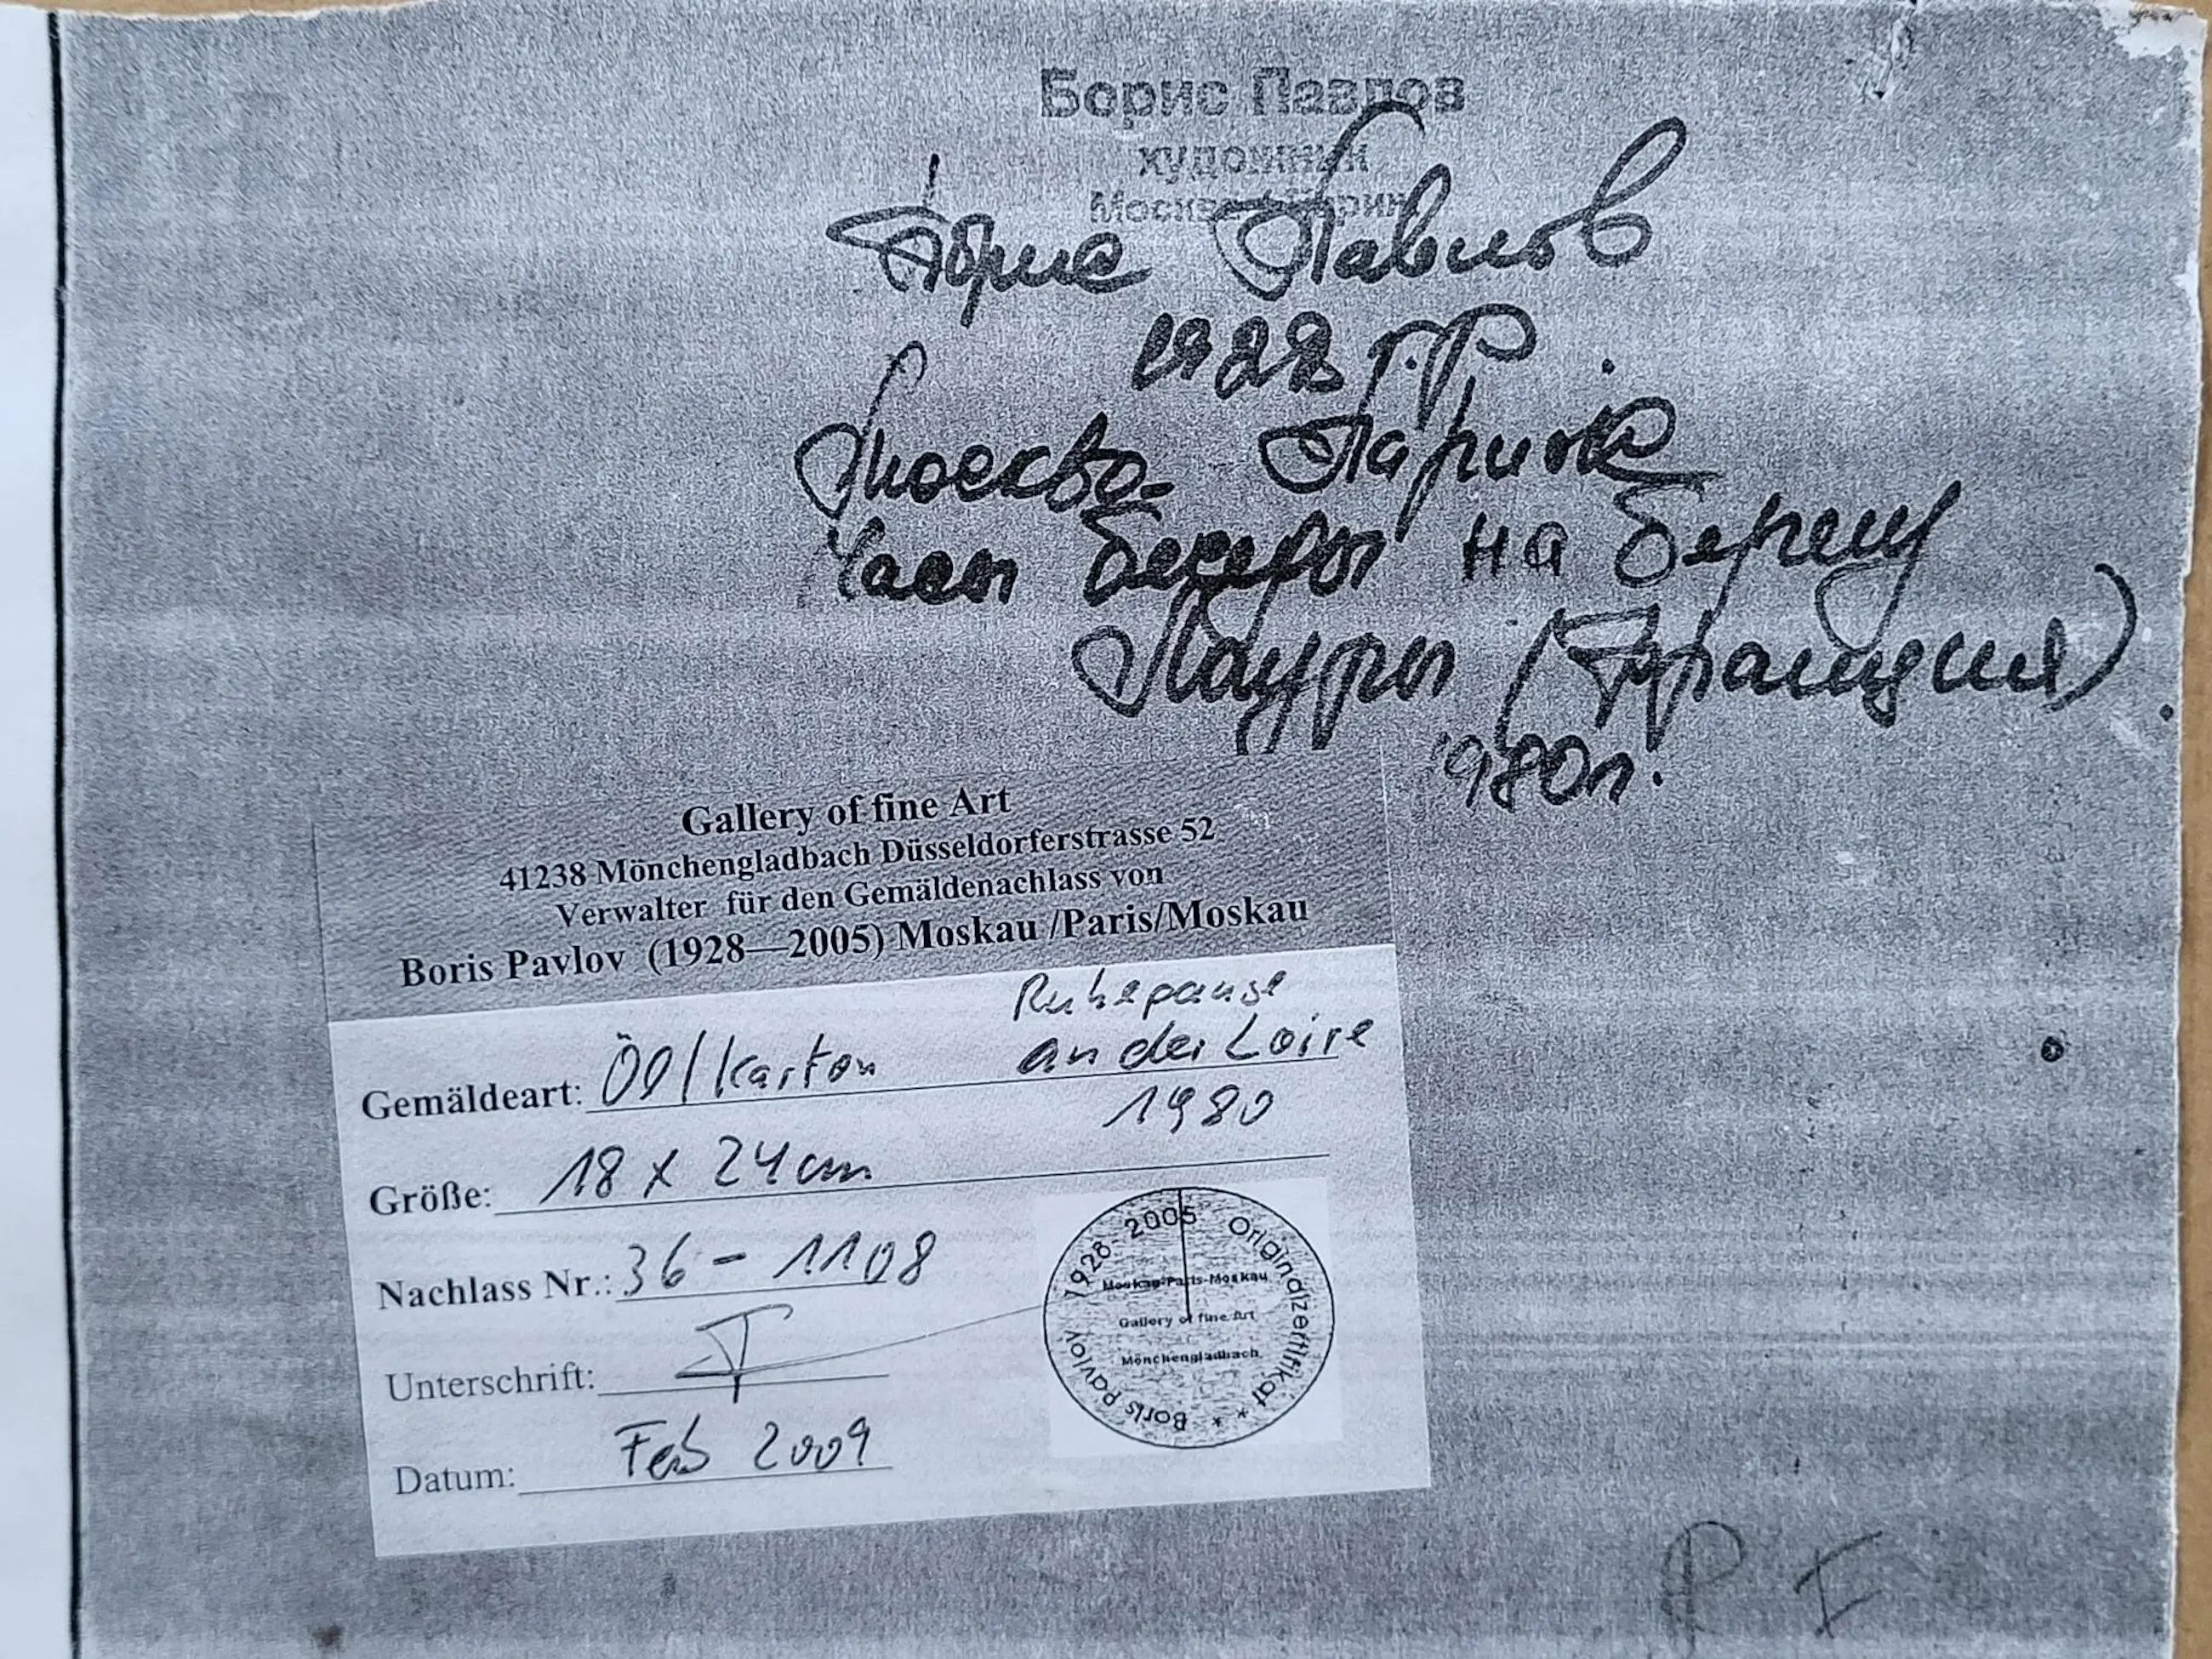 Борис Павлов
художник
Москва-Париж
Борис Павлов
1928 г.р.
Москва-Париж
Часы на берегу
Лауры (Франция)
1980г.
Gallery of fine Art
41238 Mönchengladbach Düsseldorferstrasse 52
Verwalter für den Gemäldenachlass von
Boris Pavlov (1928—2005) Moskau /Paris/Moskau
Ruhepause
Gemäldeart: Öl/Karton an der Loire
1980
Größe: 18 x 24 cm
Nachlass Nr.: 36 - 1108
Unterschrift:
Datum: Feb 2009
Boris Pavlov 1928 - 2005 Originalzertifikat * *
Moskau-Paris-Moskau
Gallery of fine Art
Mönchengladbach